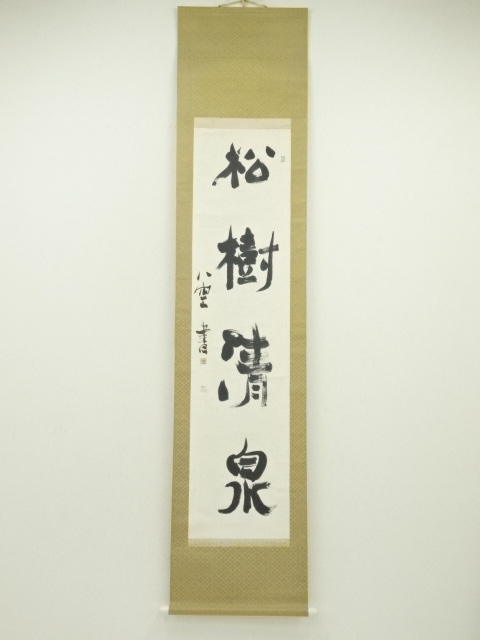 松樹清泉
八雲書